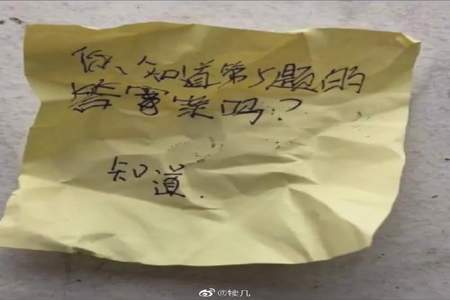 你知道第5题的
答案吗?
知道.
@牻几